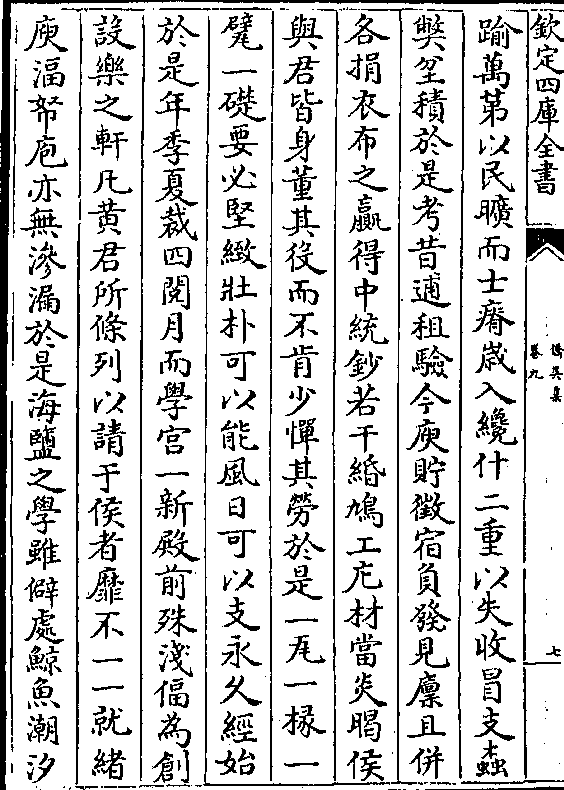 欽定四庫全書
僑吳集
卷九
七
踰萬第以民曠而士瘠嵗入纔什二重以失收冒支蠧
弊坌積於是考昔逋租驗今庾貯徵宿負發見廪且併
各捐衣布之贏得中統鈔若干緡鳩工庀材當炎暍侯
與君皆身董其役而不肯少憚其勞於是一瓦一椽一
甓一礎要必堅緻壯朴可以能風日可以支永久經始
於是年季夏裁四閱月而學宫一新殿前殊淺偪為創
設樂之軒凡黄君所條列以請于侯者靡不一一就緒
庾湢帑庖亦無滲漏於是海鹽之學雖僻處鯨魚潮汐